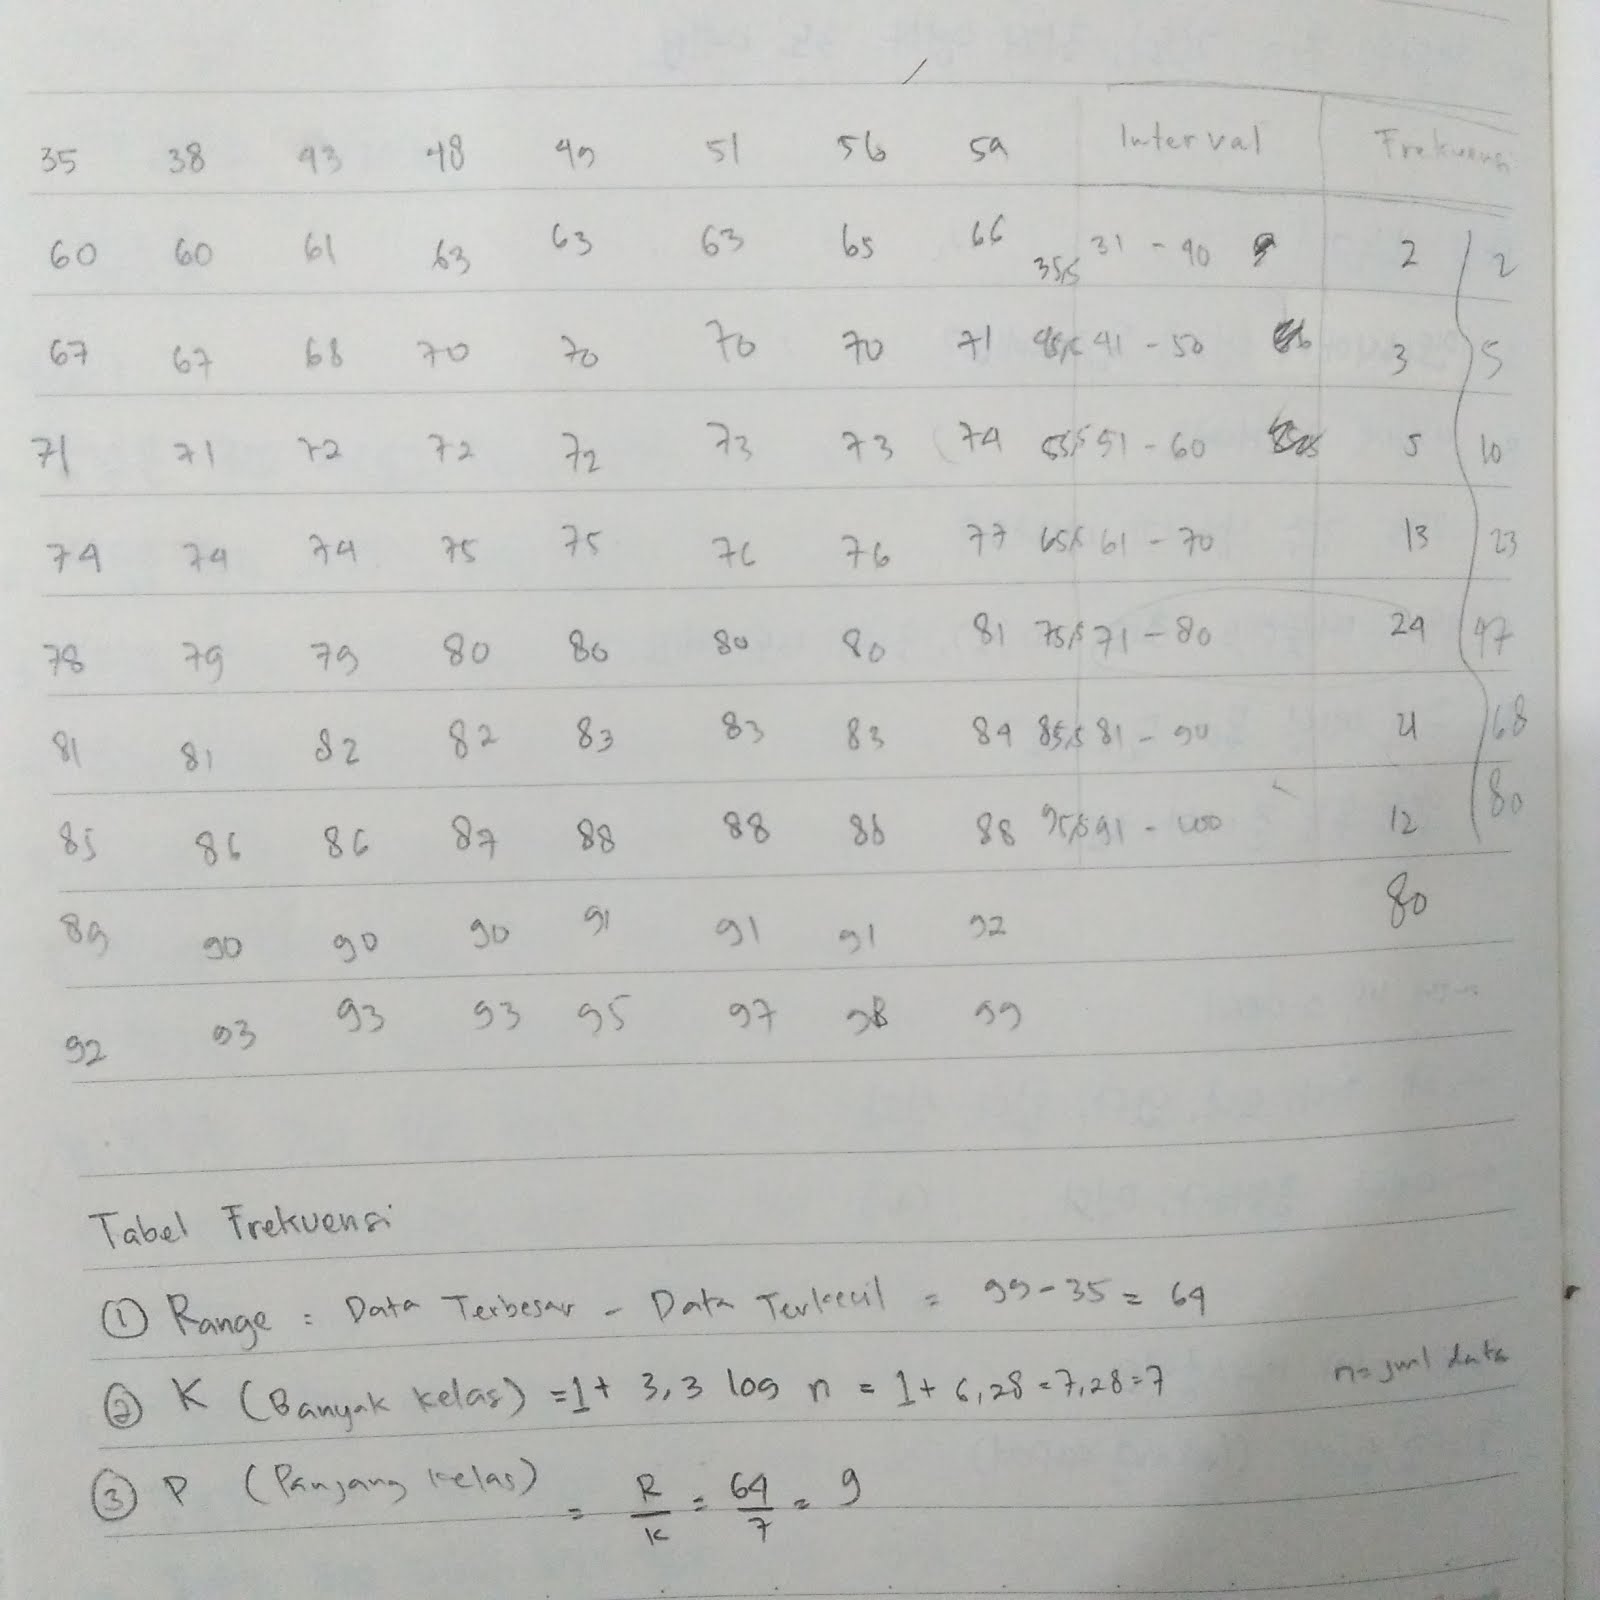 35 38 43 48 49 51 56 59 Interval Frekuensi
60 60 61 63 63 63 65 66 35,5 31 - 40 2 2
67 67 68 70 70 70 70 71 45,5 41 - 50 3 5
71 71 72 72 72 73 73 74 55,5 51 - 60 5 10
74 74 74 75 75 76 76 77 65,5 61 - 70 13 23
78 79 79 80 80 80 80 81 75,5 71 - 80 24 47
81 81 82 82 83 83 83 84 85,5 81 - 90 21 68
85 86 86 87 88 88 88 88 95,5 91 - 100 12 80
89 90 90 90 91 91 91 92 80
92 93 93 93 95 97 98 99
Tabel Frekuensi
① Range : Data Terbesar - Data Terkecil = 99 - 35 = 64
② K (Banyak kelas) = 1 + 3,3 log n = 1 + 6,28 = 7,28 = 7 n = jml data
③ P (Panjang kelas) = R/K = 64/7 = 9